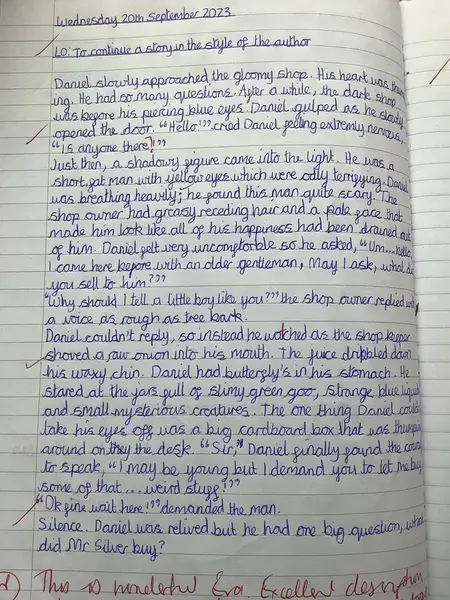 Wednesday 20th September 2023
LO: To continue a story in the style of the author
Daniel slowly approached the gloomy shop. His heart was
ing. He had so many questions. After a while, the dark shop
was before his piercing blue eyes. Daniel gulped as he slowly
opened the door. "Hello!?" cried Daniel feeling extremely nervous,
"Is anyone there!?"
Just then, a shadowy figure came into the light. He was a
short, fat man with yellow eyes which were odly terrifying. Daniel
was breathing heavily; he found this man quite scary. The
shop owner had greasy receding hair and a pale face that
made him look like all of his happiness had been drained out
of him. Daniel felt very uncomftorble so he asked, "Um... hello
I came here before with an older gentleman, May I ask, what did
you sell to him??"
"Why should I tell a little boy like you??" the shop owner replied with
a voice as rough as tree bark.
Daniel couldn't reply, so instead he watched as the shop keeper
shoved a raw onion into his mouth. The juice dribbled down
his waxy chin. Daniel had butterfly's in his stomach. He
stared at the jars full of slimy green goo, strange blue liquid
and small mysterious creatures. The one thing Daniel couldn't
take his eyes off was a big cardboard box that was thumping
around on the desk. "Sir," Daniel finally found the
to speak, "I may be young but I demand you to let me buy
some of that... weird stuff!"
"Ok fine wait here!" demanded the man.
Silence. Daniel was relived but he had one big question, what
did Mr Silver buy?
This is wonderful Eva. Excellent description